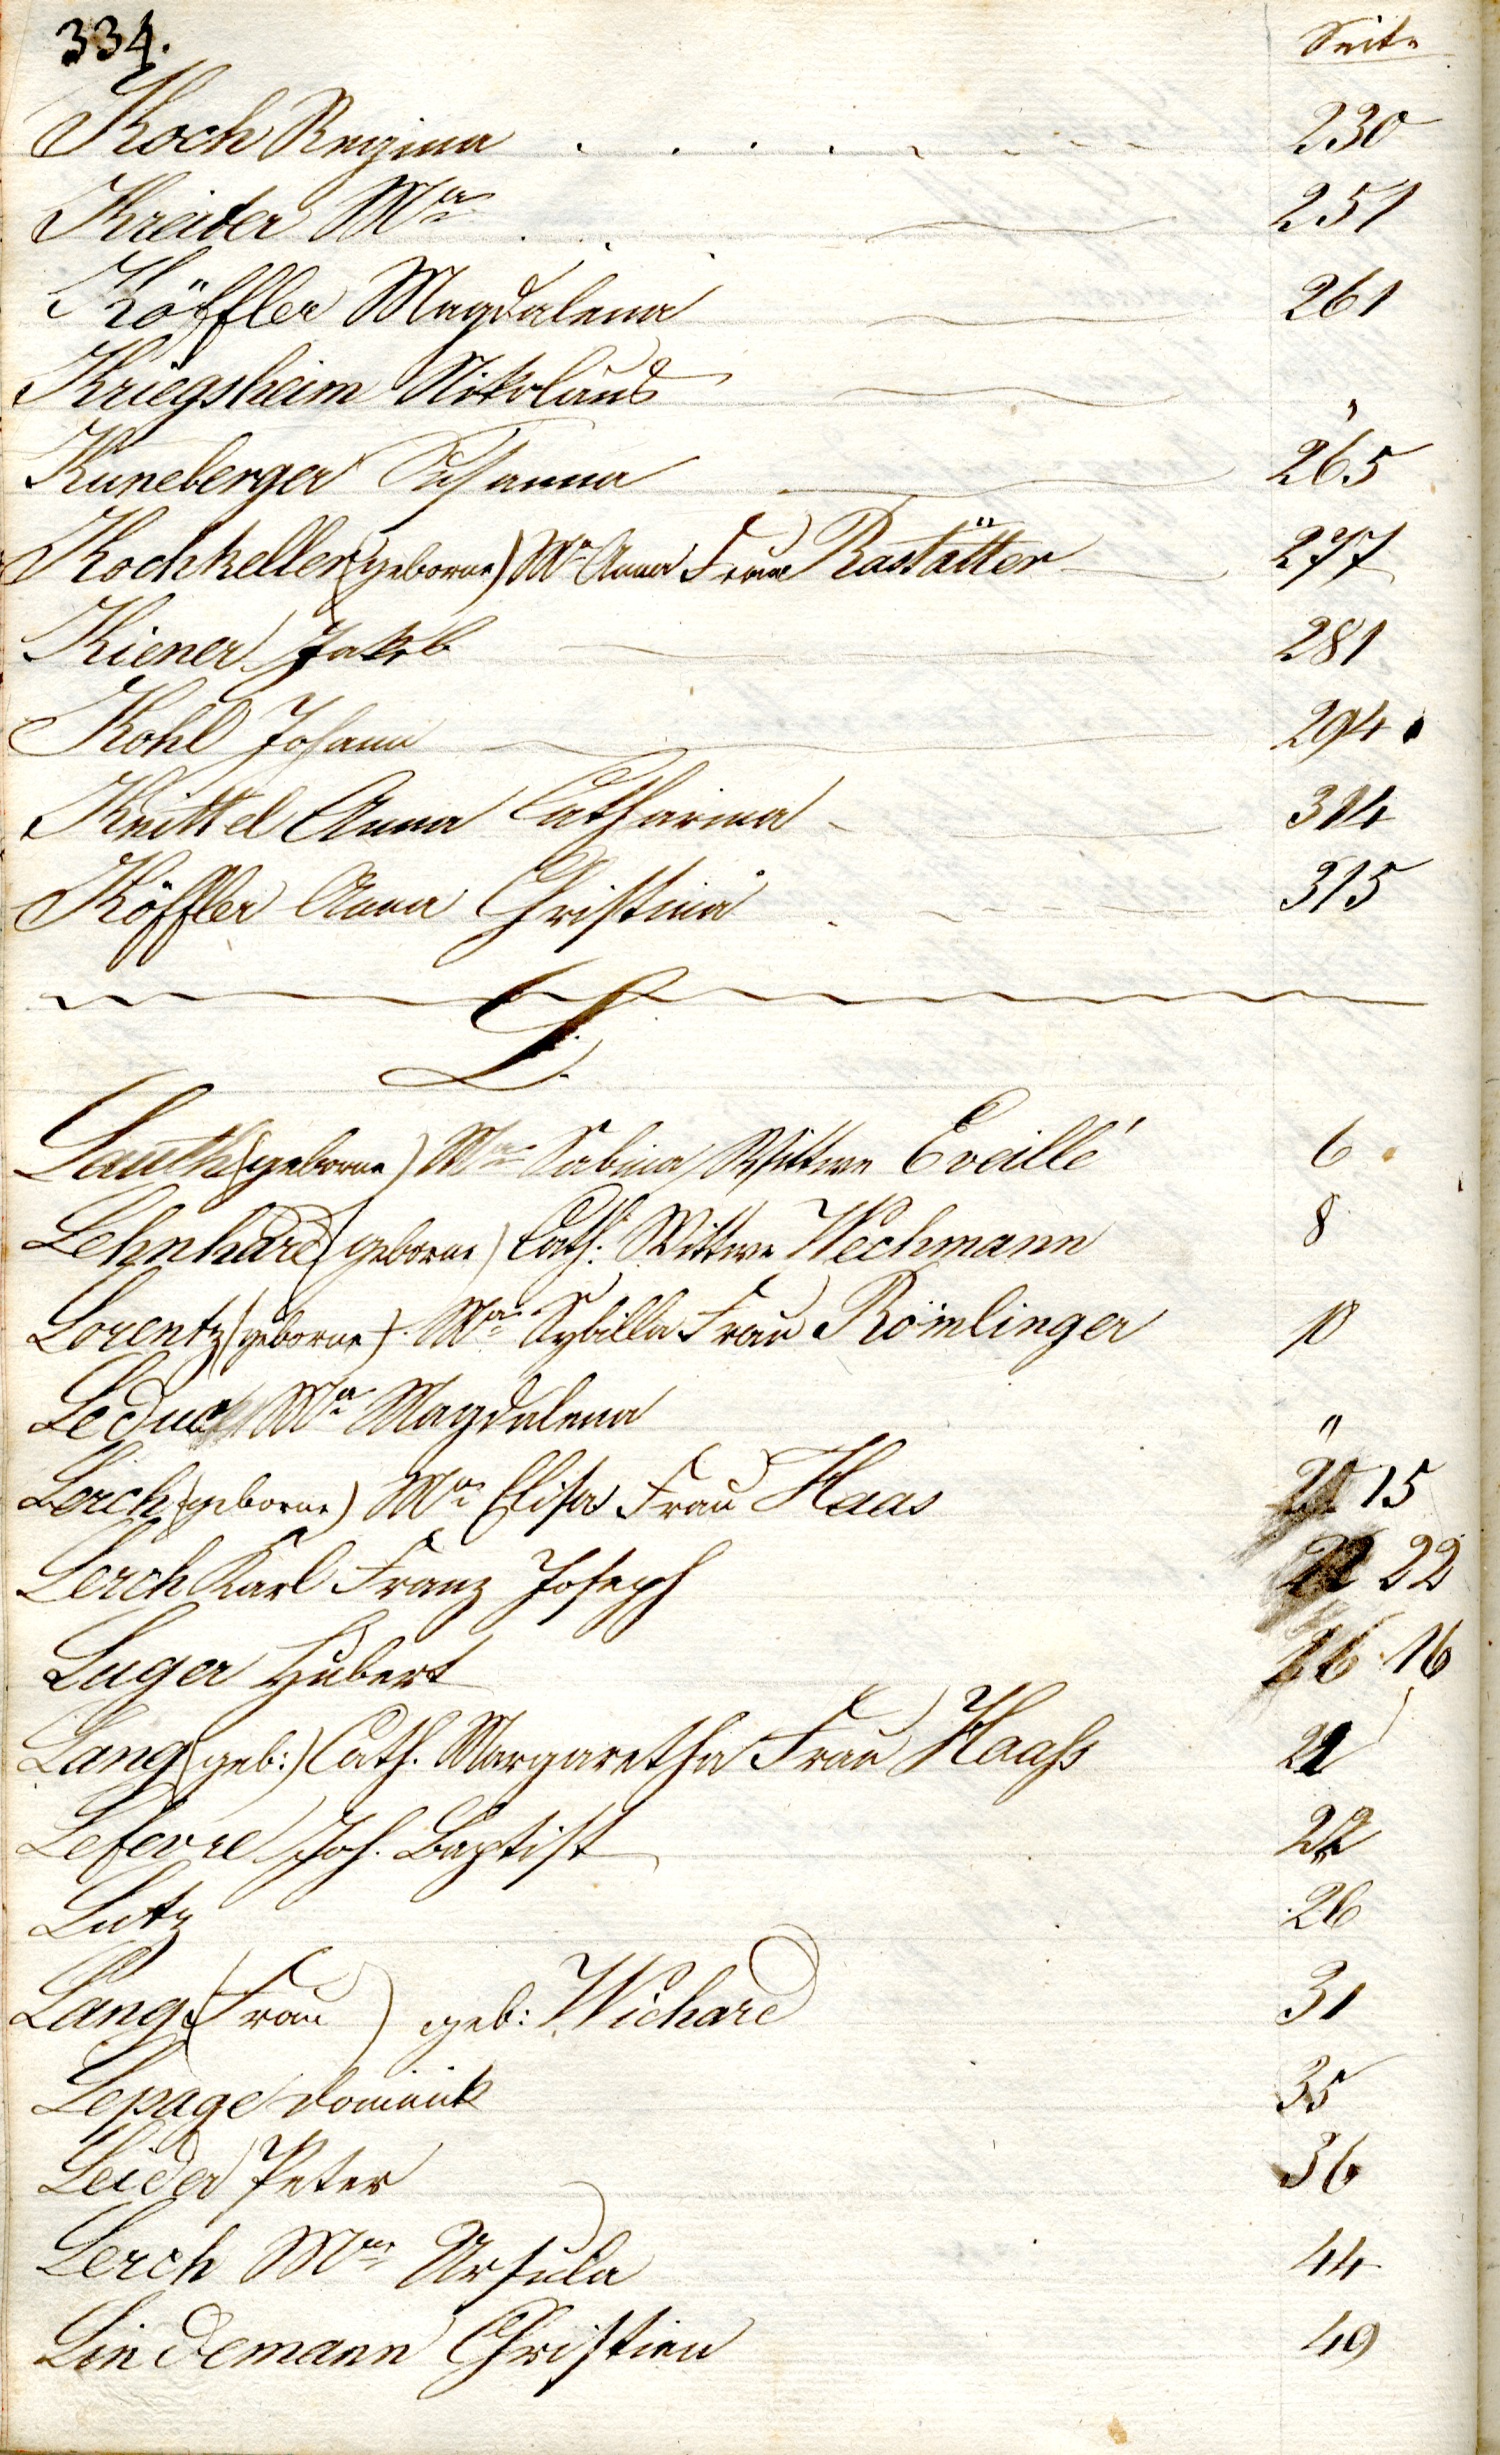 334.
Seite
Koch Regina . . . . . . . . 230
Kreiter Ma 251
Köffler Magdalena 261
Kriegsheim Nikolaus "
Kuneberger Susanna 265
Kochkeller (geborne) Ma Anna Frau Rastätter 277
Kiener Jakob 281
Kohl Johann 294
Knittel Anna Catharina 314
Köffler Anna Christina 315
L.
Lauth (geborne) Ma Sabina Wittwe Eveillé 6
Lehnhard (geborne) Cath. Wittwe Wechmann 8
Lorentz (geborne) Ma Sybilla Frau Römlinger 10
Leduc Ma Magdalena "
Lerch (geborne) Ma Elisa Frau Haas 15
Lerch Karl Franz Joseph 22
Luger Hubert 16
Lang (geb:) Cath. Margaretha Frau Haaß 21
Lefevre Joh. Baptist 22
Lutz 26
Lang (Frau) geb: Wichard 31
Lepage Dominik 35
Leider Peter 36
Lerch Ma Ursula 44
Lindemann Christian 49